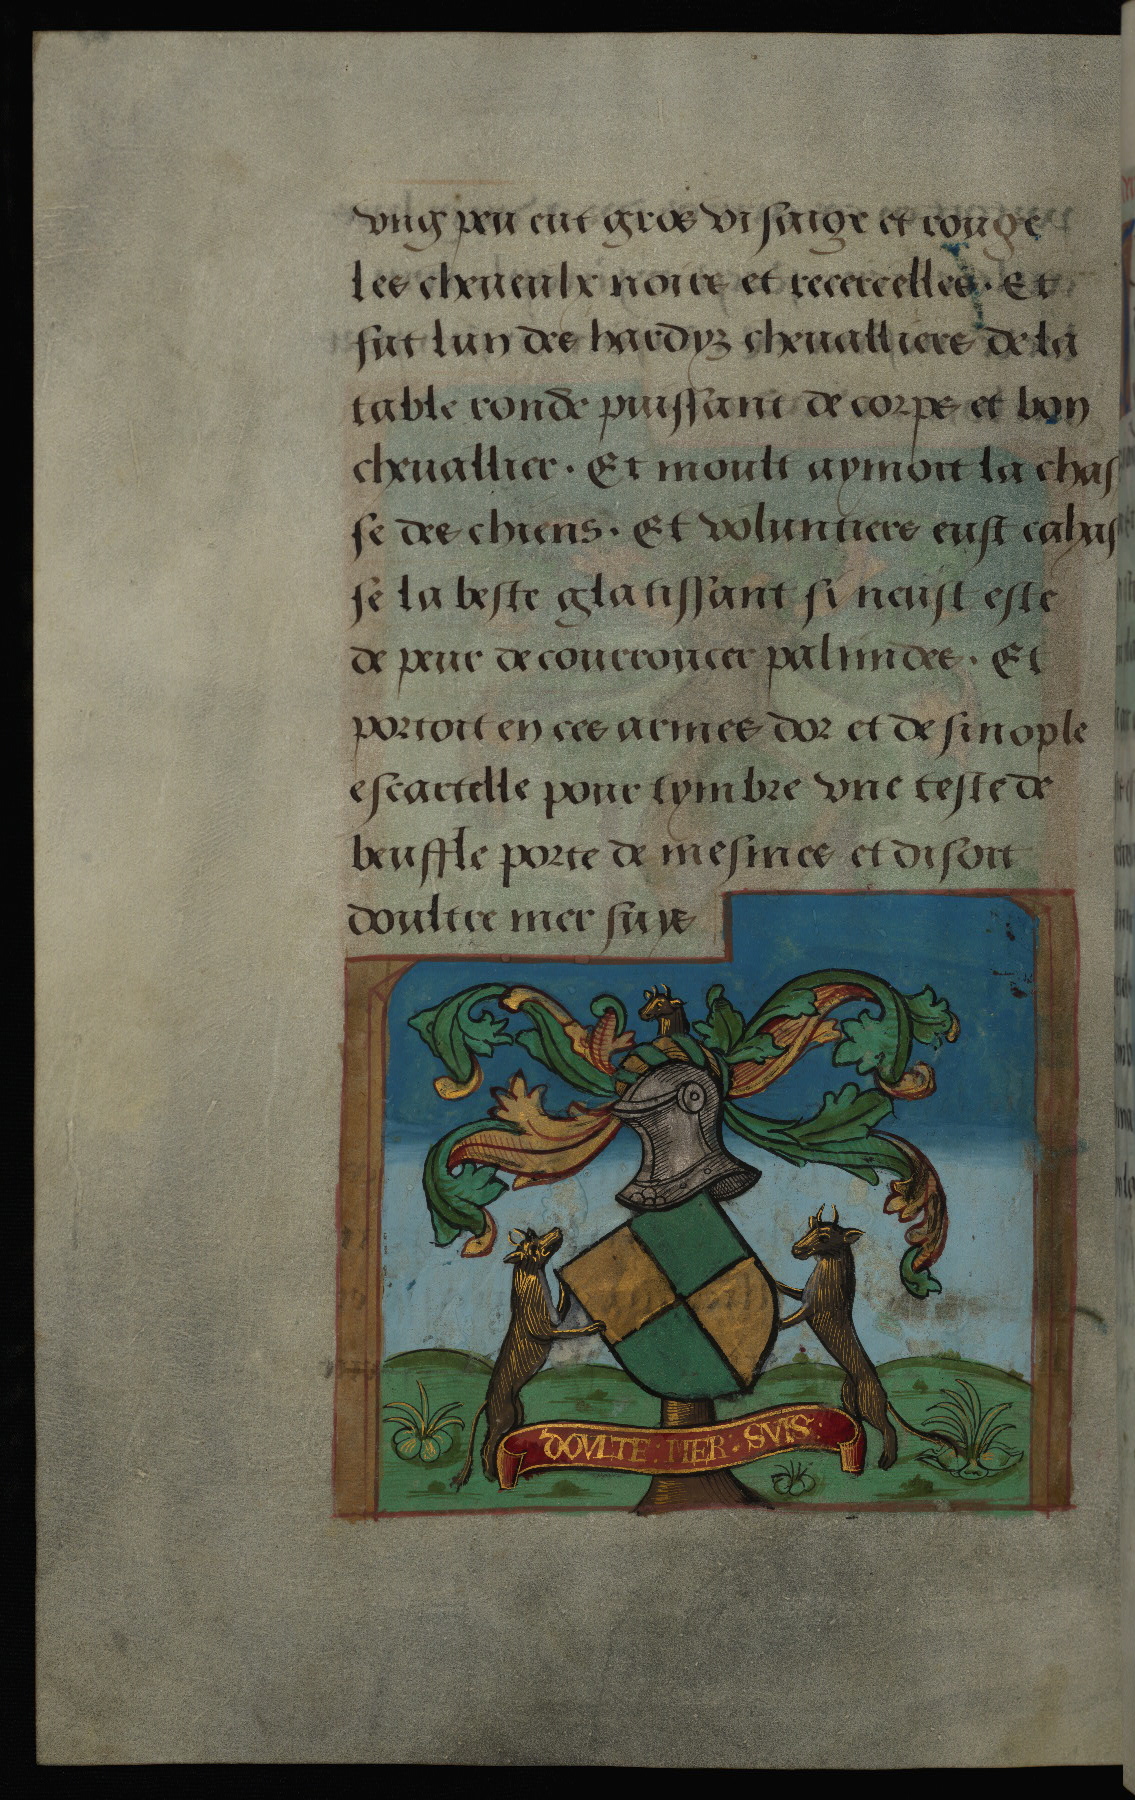 vng peu eut gros visaige et rouge
les cheueulx noirs et recercelles. Et
fut lun des hardyz cheualliers de la
table ronde puissant de corps et bon
cheuallier. Et moult aymoit la chas
se des chiens. Et voluntiers eust cahas
se la beste glatissant si neust este
de peur de courroucer palimdes. Et
portoit en ces armes dor et de sinople
escartelle pour tymbre vne teste de
beuffle porte de mesmes et disoit
doultre mer suys
DOVLTE : MER : SVIS :